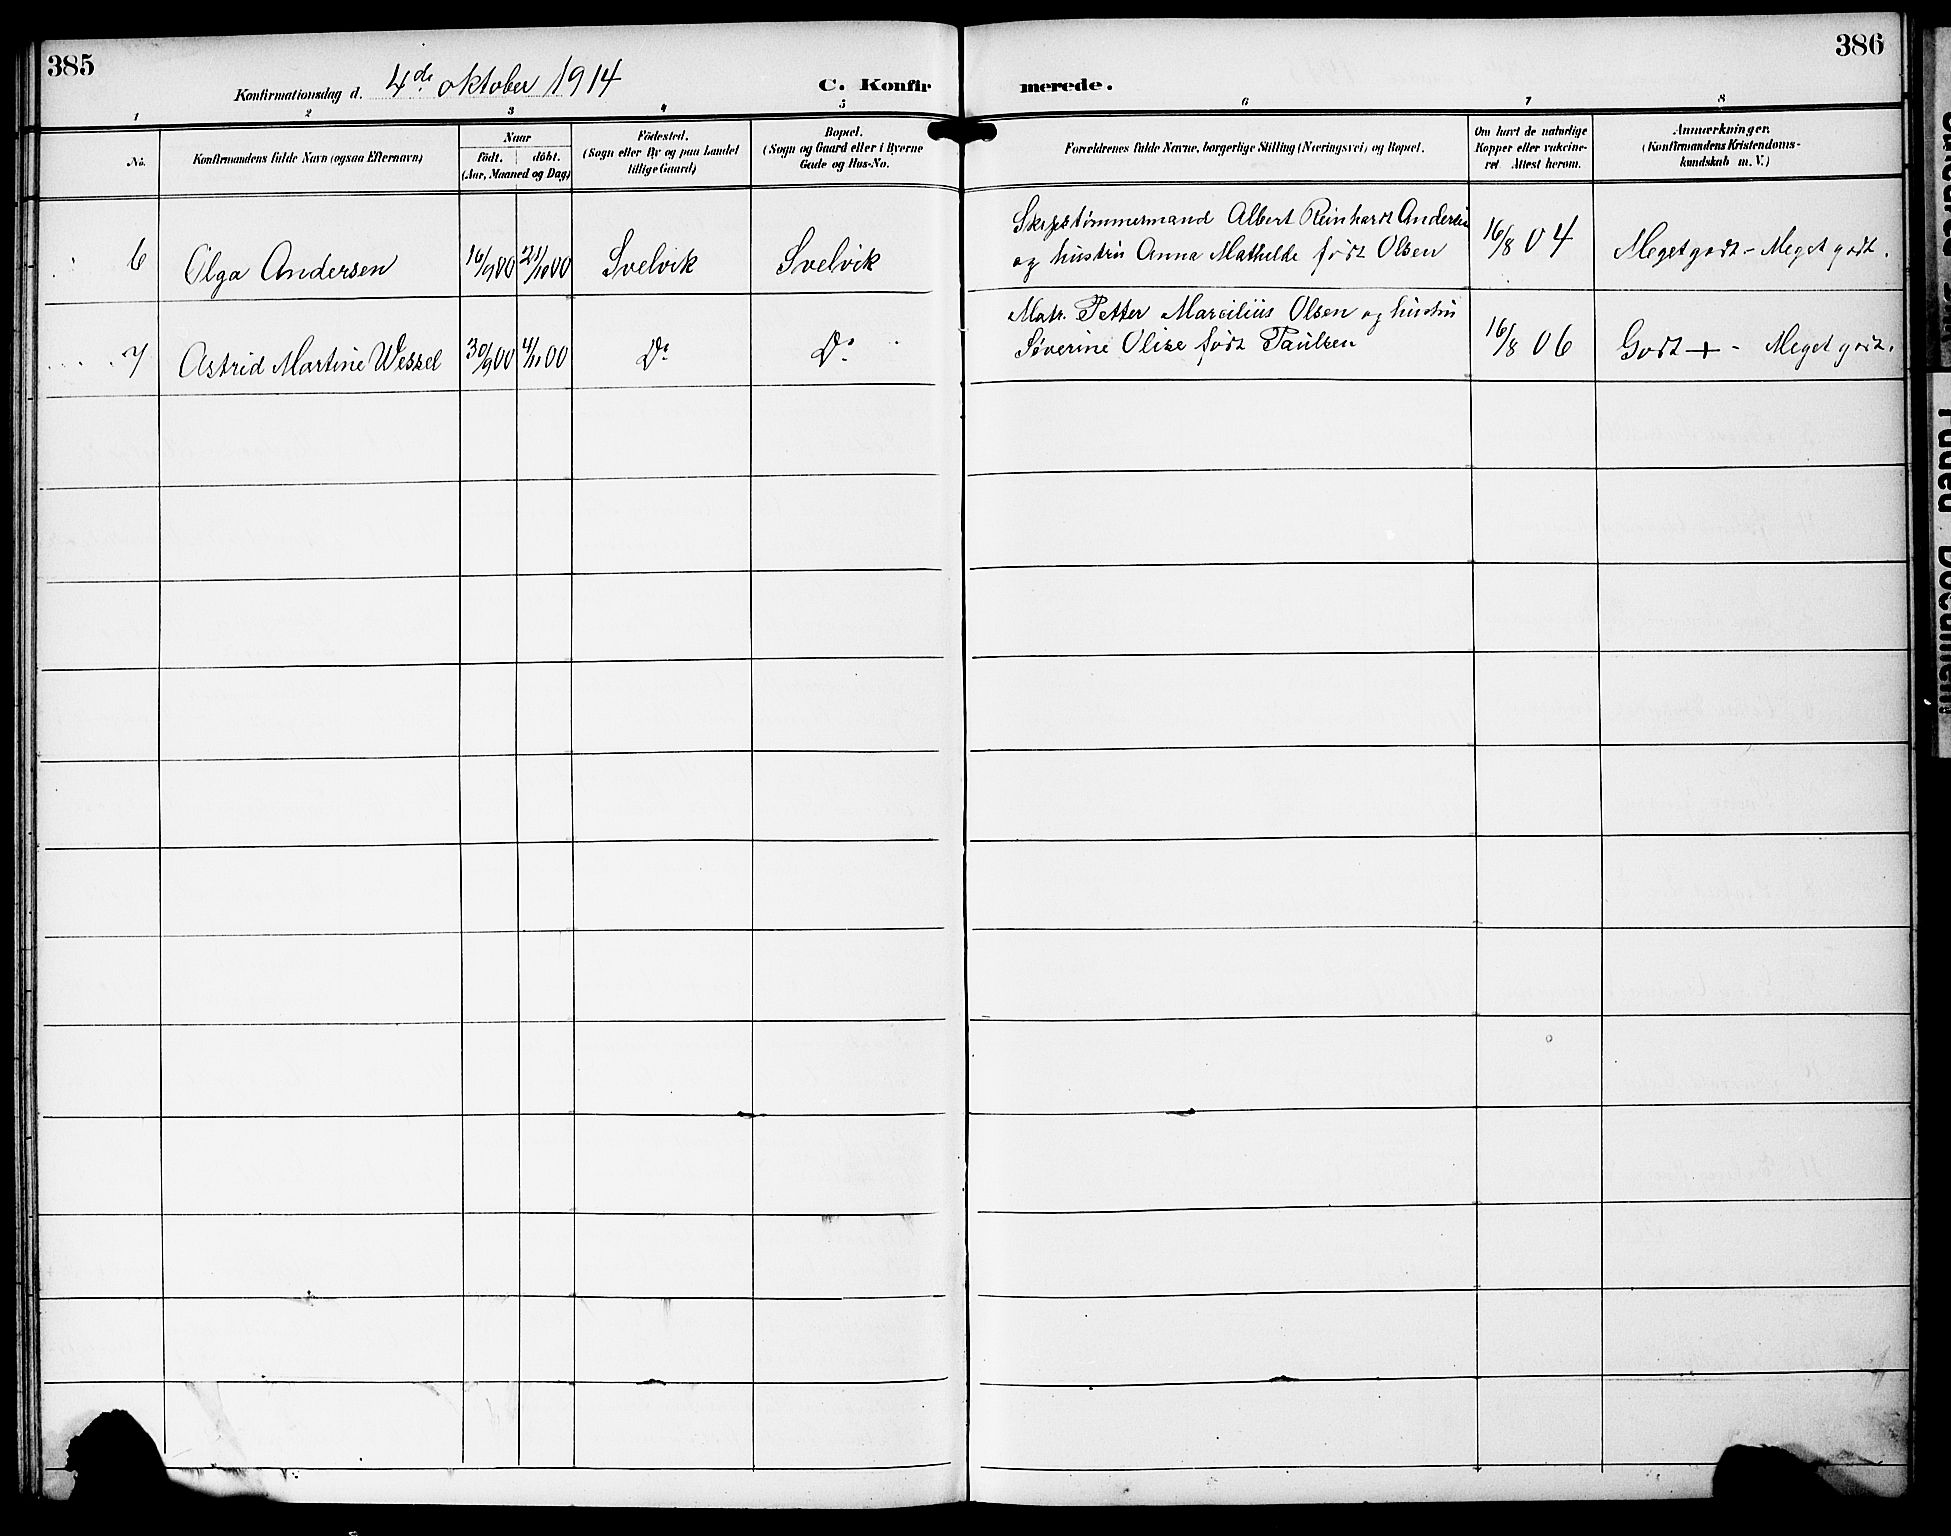 385
386
Konfirmationsdag d. 4de oktober 1914
C. Konfir
merede.
1 2 3 4 5 6 7 8
No.
Konfirmandens fulde Navn (ogsaa Efternavn)
Naar
födt. döbt.
(Aar, Maaned og Dag)
Födested.
(Sogn eller By og paa Landet
tillige Gaard)
Bopæl.
(Sogn og Gaard eller i Byerne
Gade og Hus-No.
Forældrenes fulde Navne, borgerlige Stilling (Næringsvei) og Bopæl.
Om havt de naturlige
Kopper eller vakcine-
ret Attest herom.
Anmærkninger.
(Konfirmandens Kristendoms-
kundskab m. V.)
6 Olga Andersen 16/9 00 21/10 00 Svelvik Svelvik
Skipstømmermand Albert Reinhardt Andersen
og hustru Anna Mathilde født Olsen
16/8 04 Meget godt - Meget godt.
7 Astrid Martine Wessel 30/9 00 4/11 00 Do Do
Matr. Petter Marcilius Olsen og hustru
Søverine Olise født Paulsen
16/8 06 Godt + - Meget godt.
Document